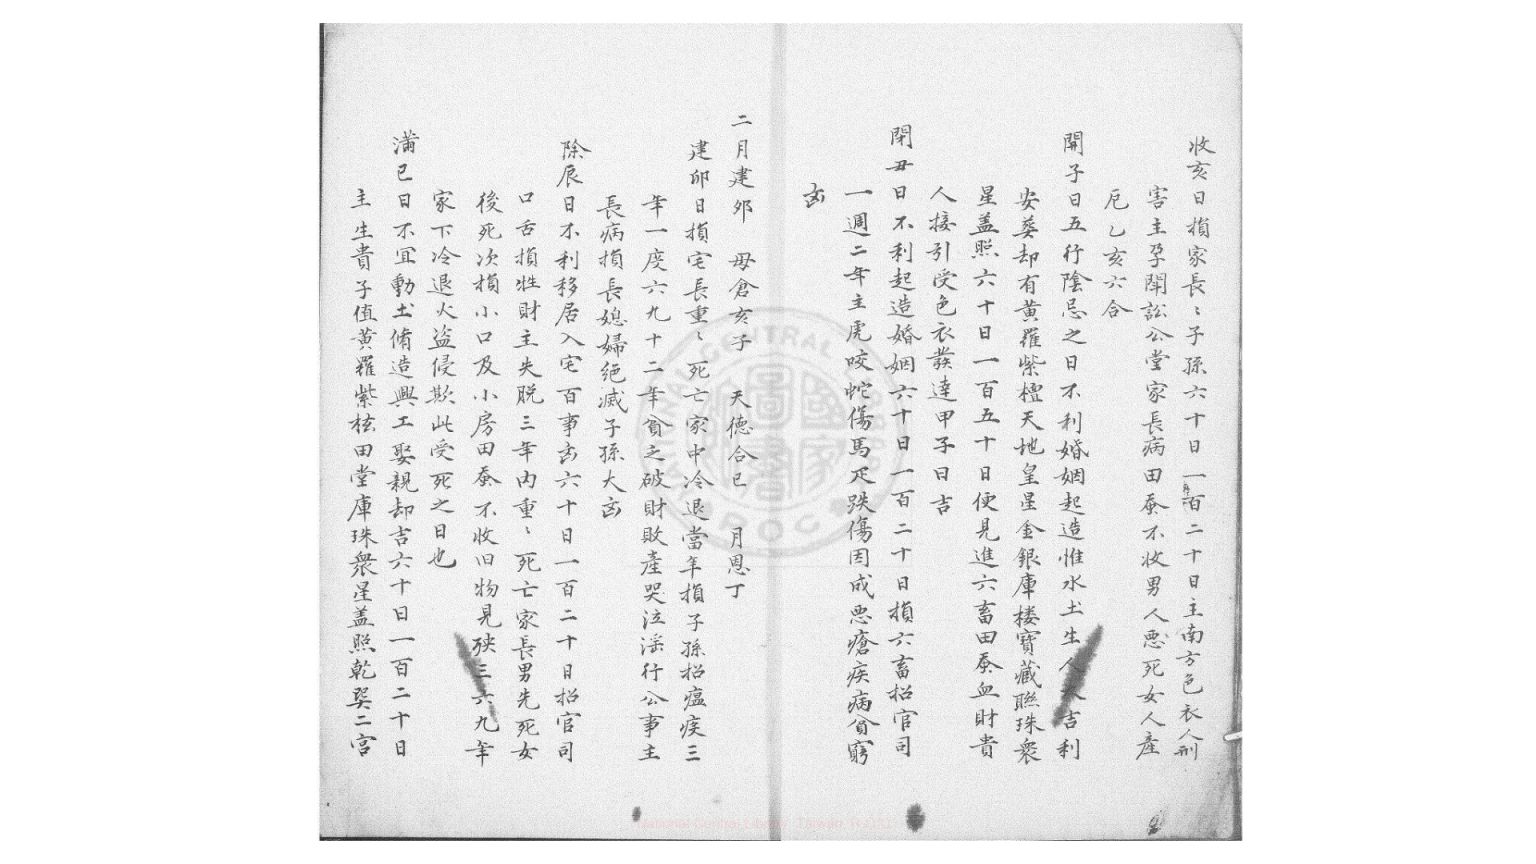 收亥日損家長〻子孫六十日一年百二十日主南方色衣人刑
害主孕鬪訟公堂家長病田蚕不收男人惡死女人產
厄乙亥六合
開子日五行陰忌之日不利婚姻起造惟水土生人大吉利
安葬却有黃羅紫檀天地皇星金銀庫楼寶藏聮珠衆
星盖照六十日一百五十日便見進六畜田蚕血財貴
人接引受色衣發達甲子日吉
閉丑日不利起造婚姻六十日一百二十日損六畜招官司
一週二年主虎咬蛇傷馬疋跌傷因成惡瘡疾病貧窮
凶
二月建夘　母倉亥子　天德合巳　月恩丁
建卯日損宅長重〻死亡家中冷退當年損子孫招瘟疾三
年一度六九十二年貧乏破財敗產哭泣淫行公事主
長病損長媳婦絕滅子孫大凶
除辰日不利移居入宅百事凶六十日一百二十日招官司
口舌損牲財主失脫三年內重〻死亡家長男先死女
後死次損小口及小房田蚕不收旧物見殃三六九年
家下冷退火盜侵欺此受死之日也
滿巳日不宜動土脩造興工娶親却吉六十日一百二十日
主生貴子值黃羅紫桂田堂庫珠衆星盖照乾巽二宮
National Central Library, Taiwan, R.O.C.
NATIONAL CENTRAL LIBRARY
國家圖書館
ROC